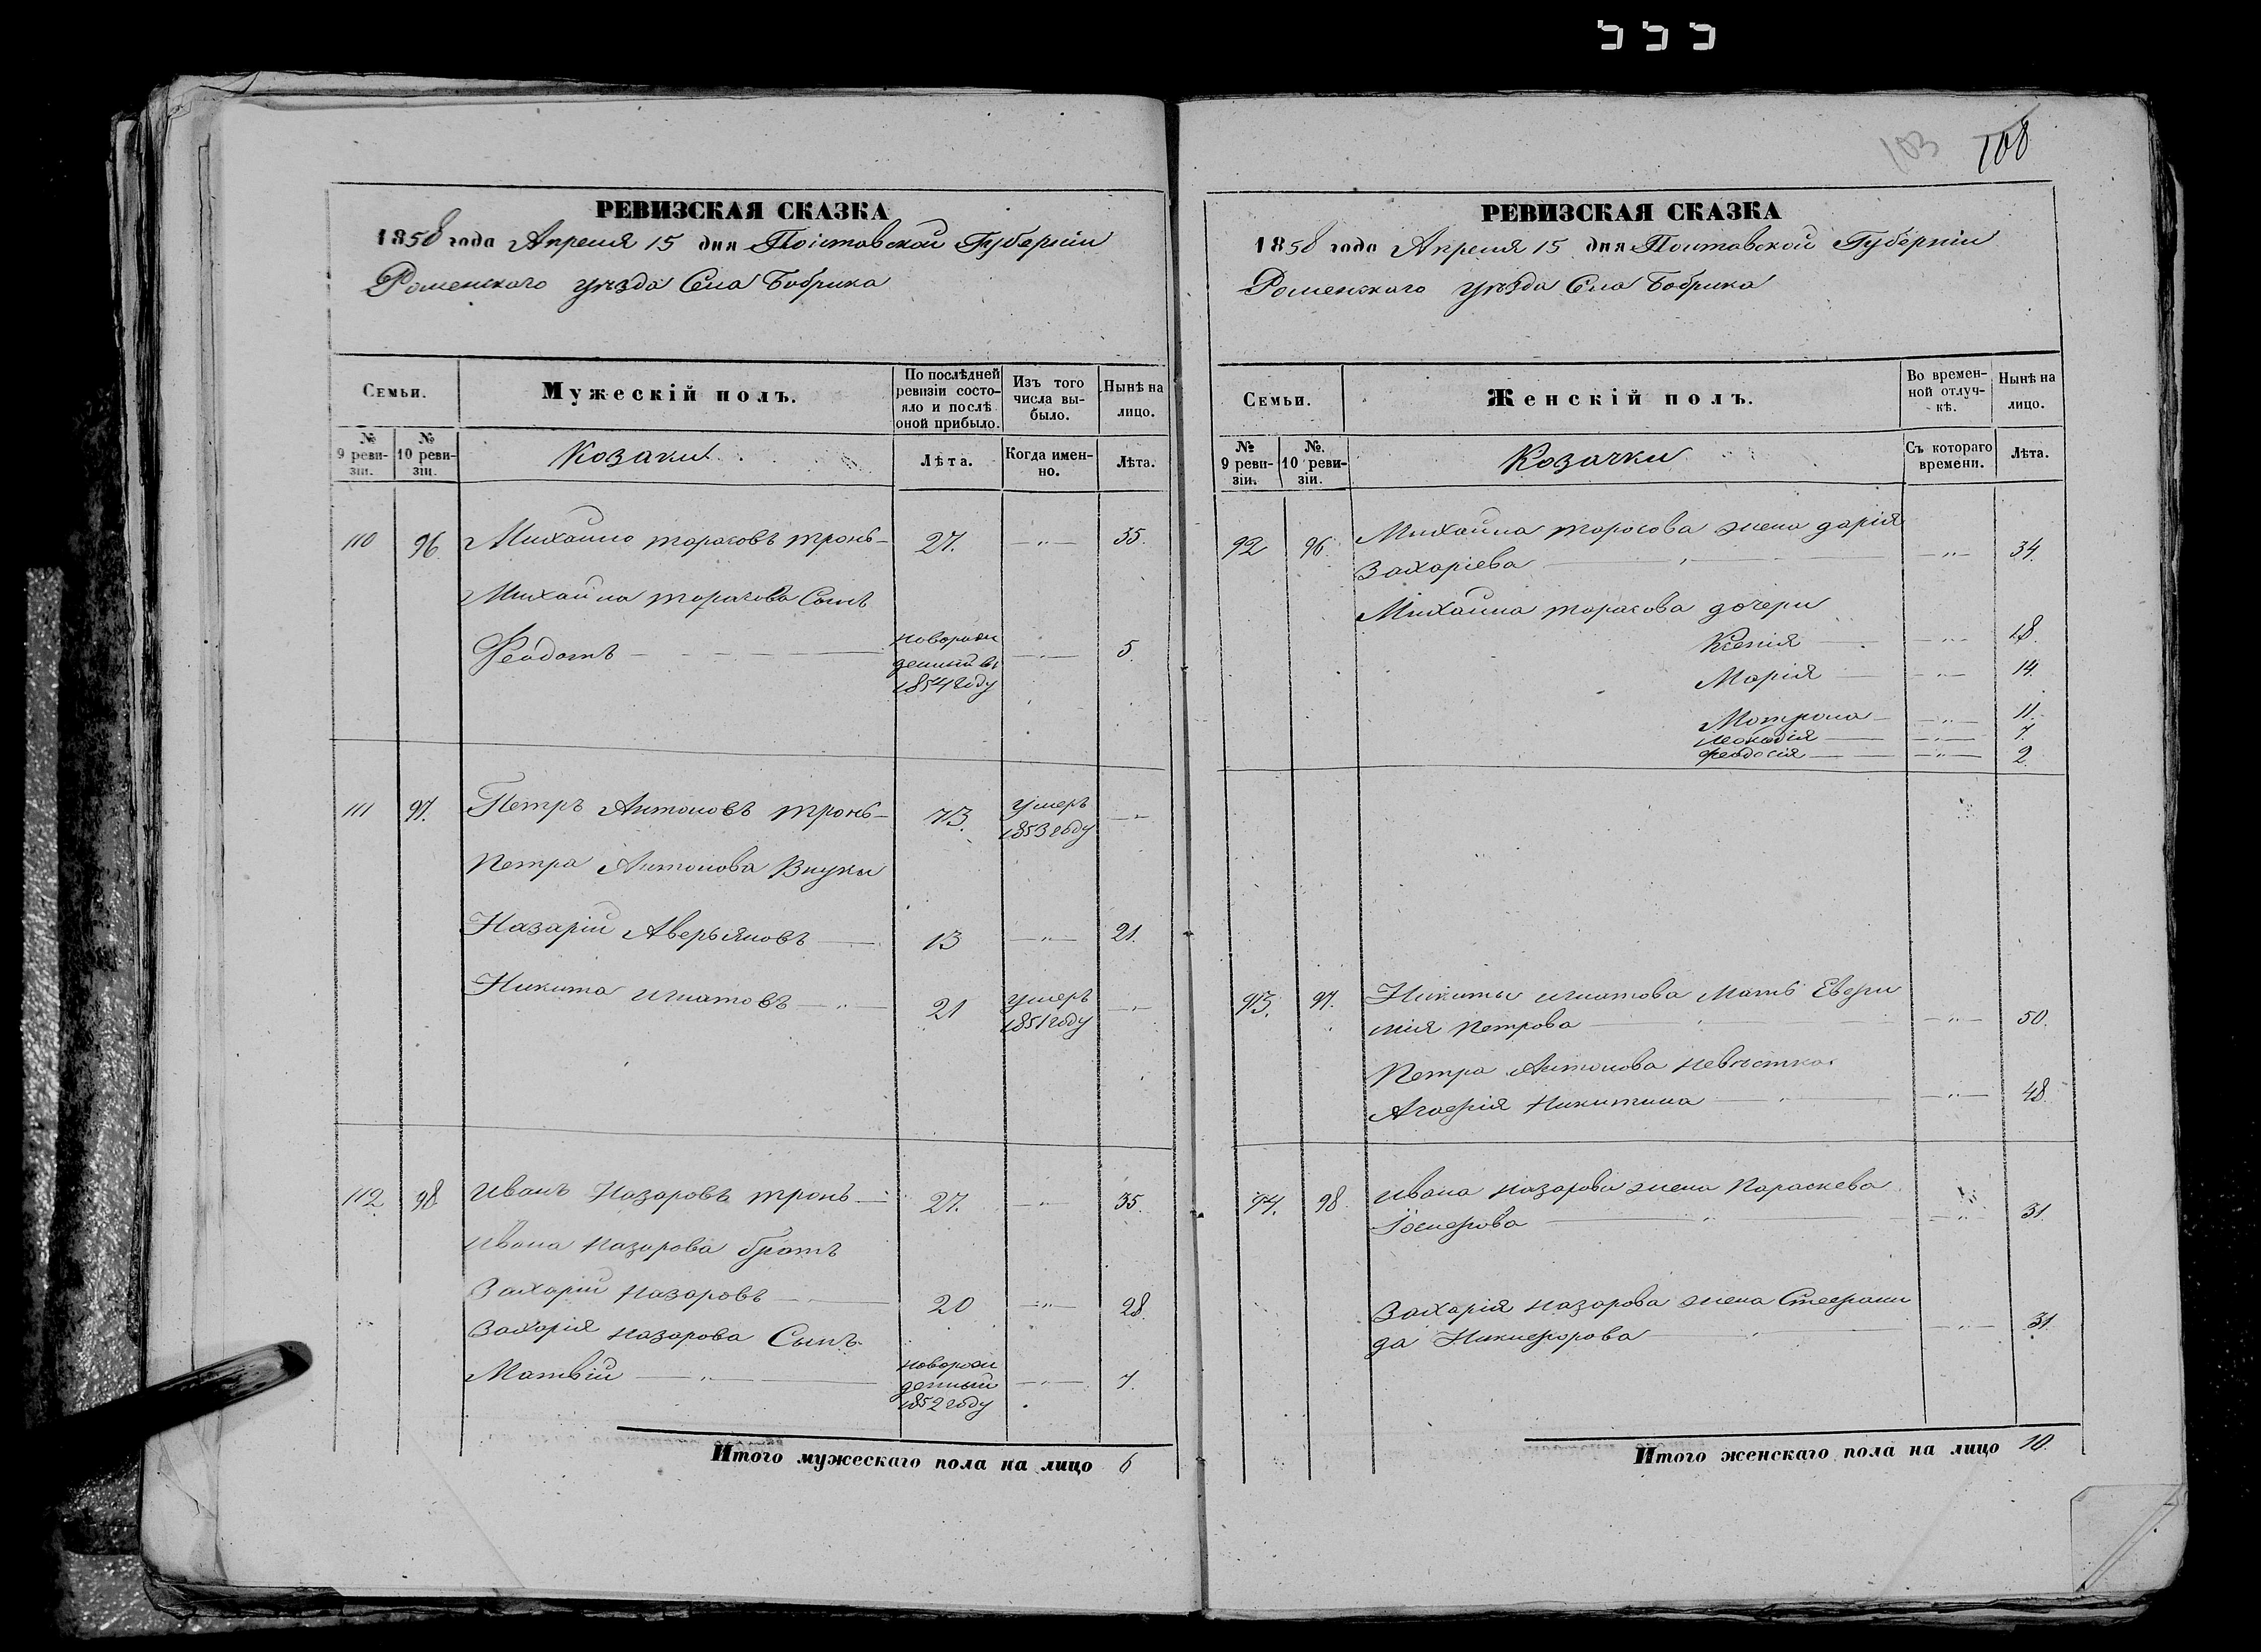 103 108
РЕВИЗСКАЯ СКАЗКА
1858 года Апреля 15 дня Полтавской Губерніи
Роменскаго уѣзда Села Бобрика
Семьи.
Мужескій полъ.
По послѣдней ревизіи состояло и послѣ оной прибыло.
Изъ того числа выбыло.
Нынѣ на лицо.
№ 9 ревизіи.
№ 10 ревизіи.
Козаки
Лѣта.
Когда именно.
Лѣта.
110 96 Михайло тарасовъ тронь 27. 35.
Михайла тарасова Сынъ
Феодотъ новорожденный въ 1854 году 5.
111 97. Петръ Антоновъ тронь 73. умеръ 1853 году
Петра Антонова Внуки
Назарій Аверьяновъ 13 21.
Никита игнатовъ 21 умеръ 1851 году
112 98 Иванъ Назаровъ тронь 27. 35.
Ивана Назарова братъ
Захарій Назаровъ 20 28
Захарія Назарова Сынъ
Матвій новорожденный 1852 году 7.
Итого мужескаго пола на лицо 6
РЕВИЗСКАЯ СКАЗКА
1858 года Апреля 15 дня Полтавской Губерніи
Роменскаго уѣзда Села Бобрика
Семьи.
Женскій полъ.
Во временной отлучкѣ.
Нынѣ на лицо.
№ 9 ревизіи.
№ 10 ревизіи.
Козачки
Съ котораго времени.
Лѣта.
92 96 Михайла тарасова жена дарія
Захаріева 34
Михайла тарасова дочери
Ксенія 18.
Марія 14.
Мотрона 11.
7.
феодосія 2
93. 97. Никиты игнатова Мать Евфи
мія Петрова 50.
Петра Антонова невѣстка
Агафія Никитина 48.
94. 98. Ивана назарова жена Параскева
31.
Захарія назарова жена Стефани
да Никифорова 31
Итого женскаго пола на лицо 10.